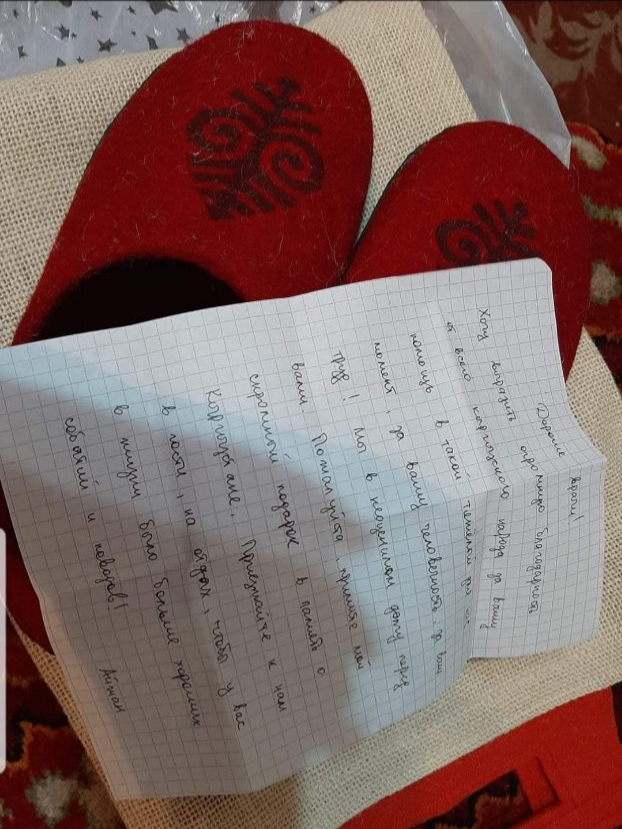 Дорогие врачи!
Хочу выразить огромную благодарность
от всего кыргызского народа за вашу
помощь в такой тяжелый для нас
момент, за вашу человечность, за ваш
труд! Мы в неоценимом долгу перед
вами. Пожалуйста, примите мой
скромный подарок в память о
Кыргызстане. Приезжайте к нам
в гости, на отдых, чтобы у вас
в жизни было больше хороших
событий и поводов!
Айжан